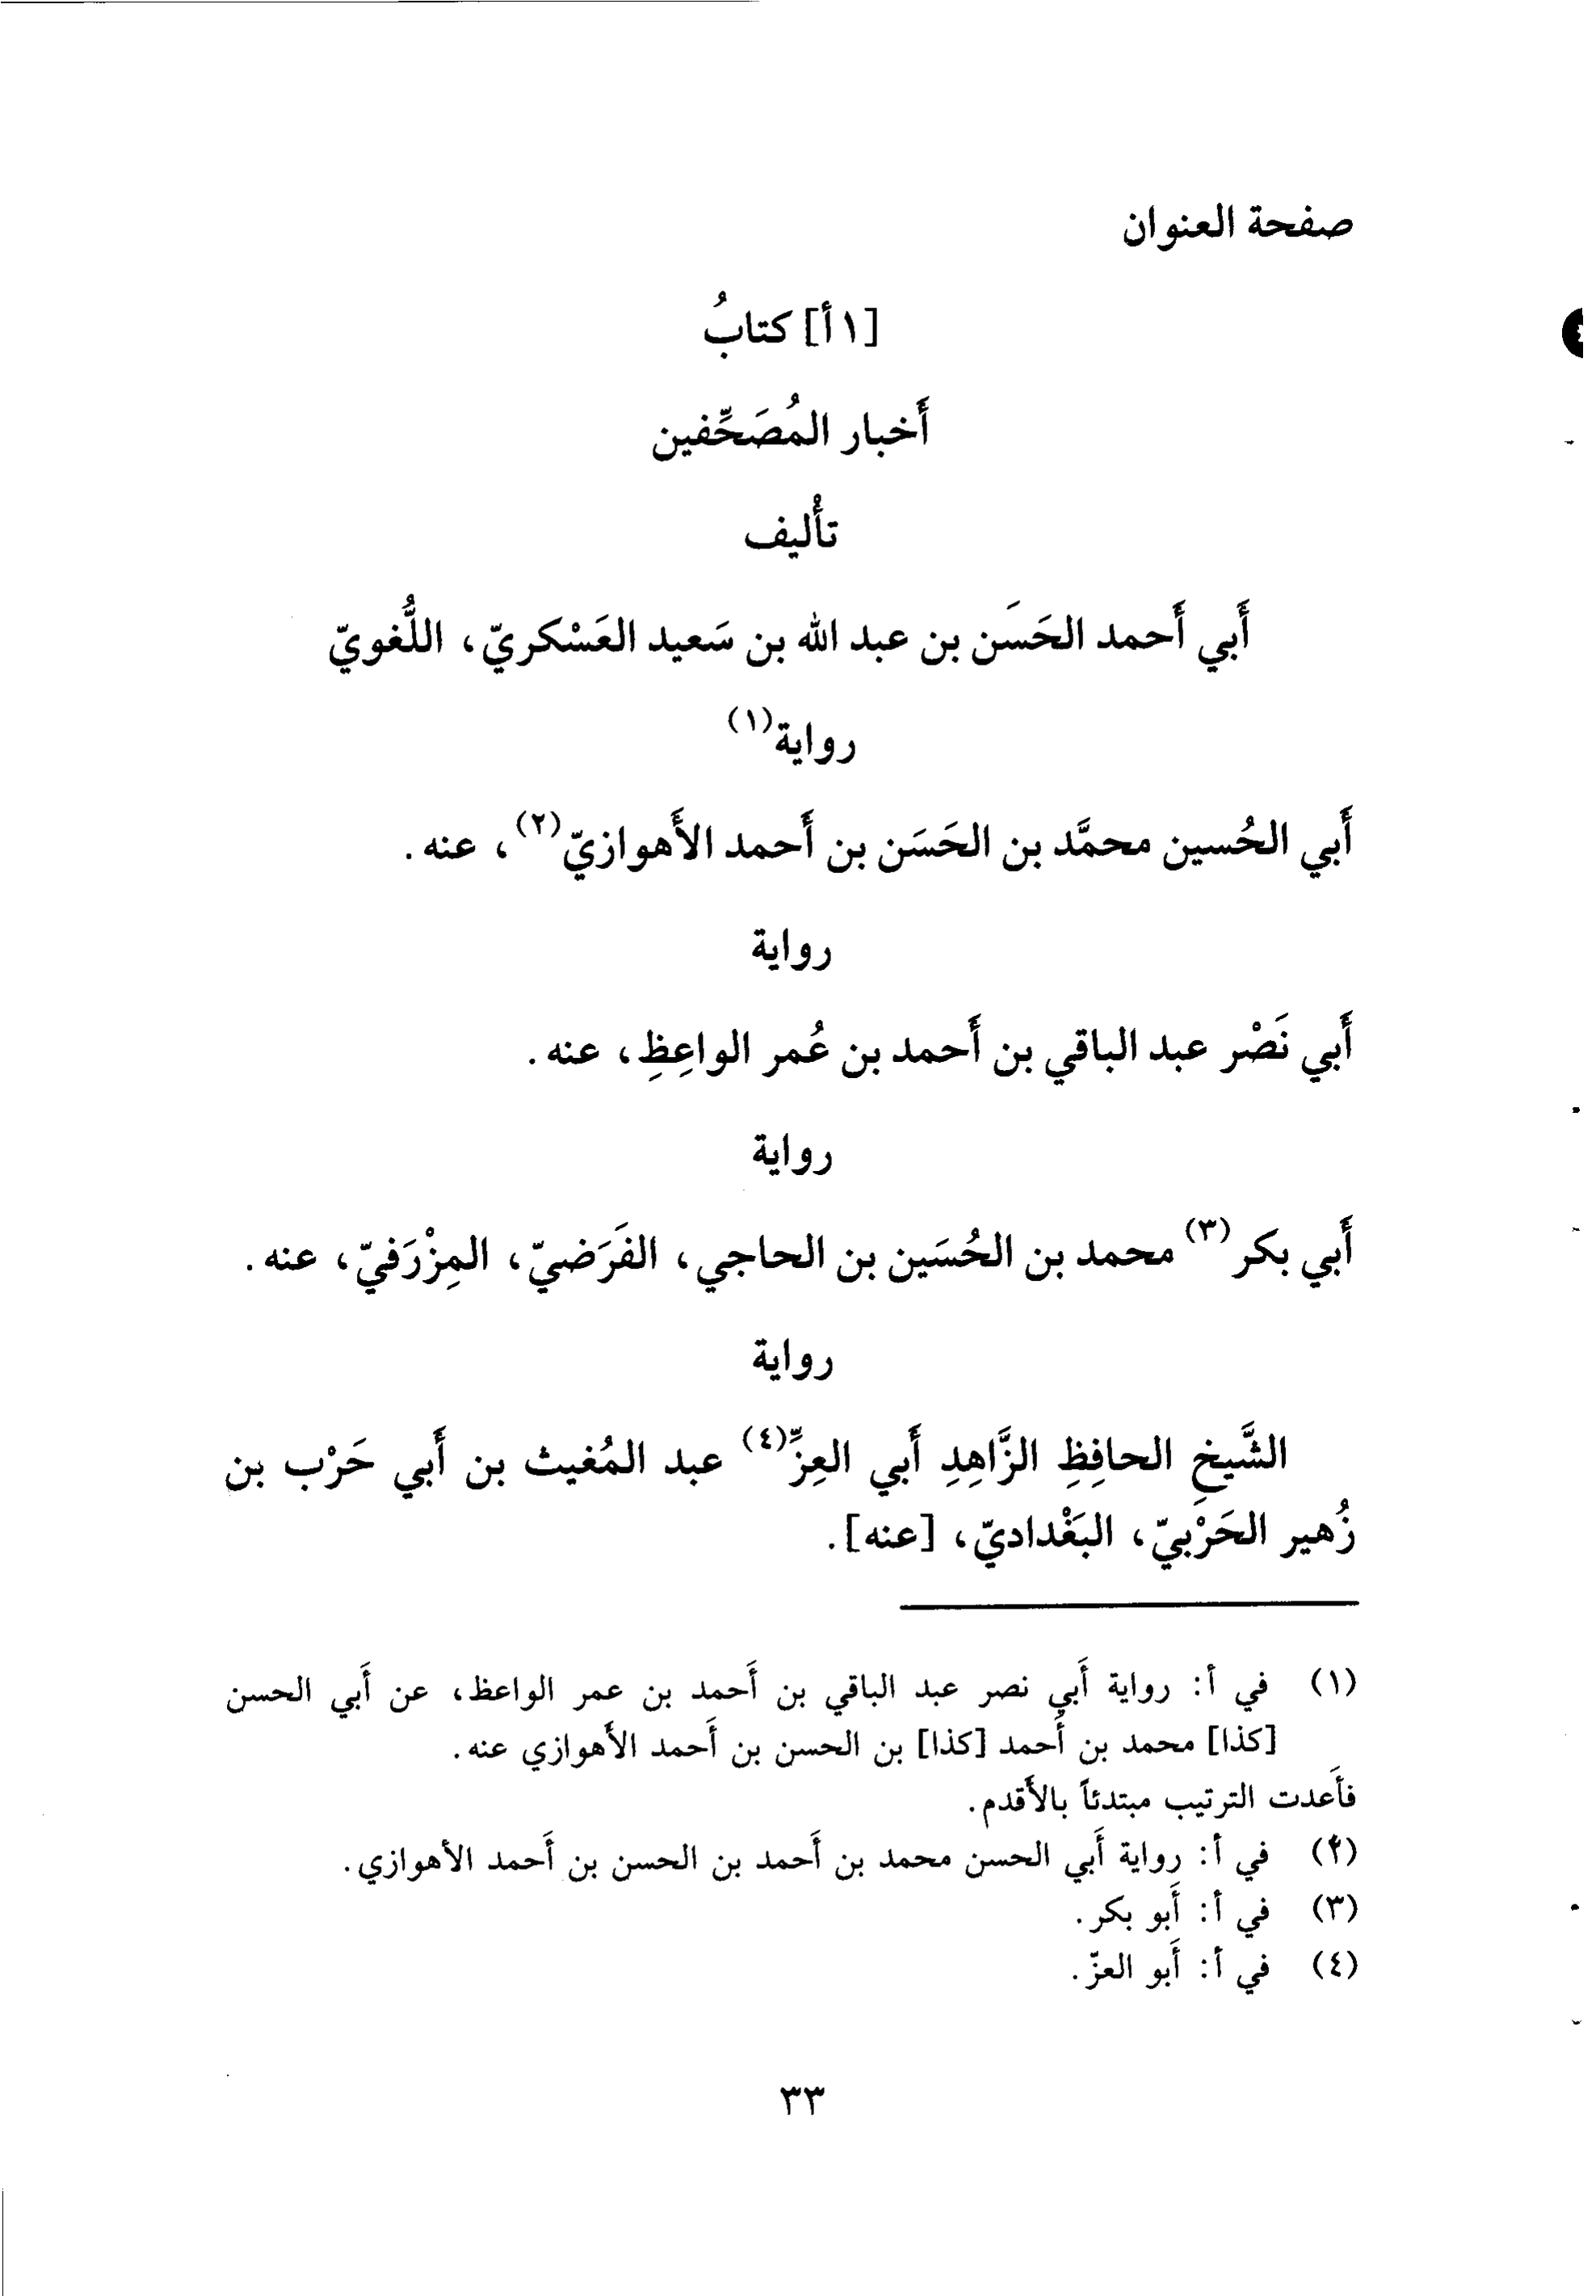 صفحة العنوان
[١ أ] كتابُ
أَخبار المُصَحِّفين
تأْليف
أَبي أَحمد الحَسَن بن عبد الله بن سَعيد العَسْكريّ، اللُّغويّ
رواية(١)
أَبي الحُسين محمَّد بن الحَسَن بن أَحمد الأَهوازيّ(٢)، عنه.
رواية
أَبي نَصْر عبد الباقي بن أَحمد بن عُمر الواعِظِ، عنه.
رواية
أَبي بكر(٣) محمد بن الحُسَين بن الحاجي، الفَرَضيّ، المِزْرَفيّ، عنه.
رواية
الشَّيخِ الحافِظِ الزَّاهِدِ أَبي العِزِّ(٤) عبد المُغيث بن أَبي حَرْب بن
زُهير الحَرْبيّ، البَغْداديّ، [عنه].
(١) في أ: رواية أَبي نصر عبد الباقي بن أَحمد بن عمر الواعظ، عن أَبي الحسن
[كذا] محمد بن أَحمد [كذا] بن الحسن بن أَحمد الأَهوازي عنه.
فأَعدت الترتيب مبتدئاً بالأَقدم.
(٢) في أ: رواية أَبي الحسن محمد بن أَحمد بن الحسن بن أَحمد الأهوازي.
(٣) في أ: أَبو بكر.
(٤) في أ: أَبو العزّ.
٣٣